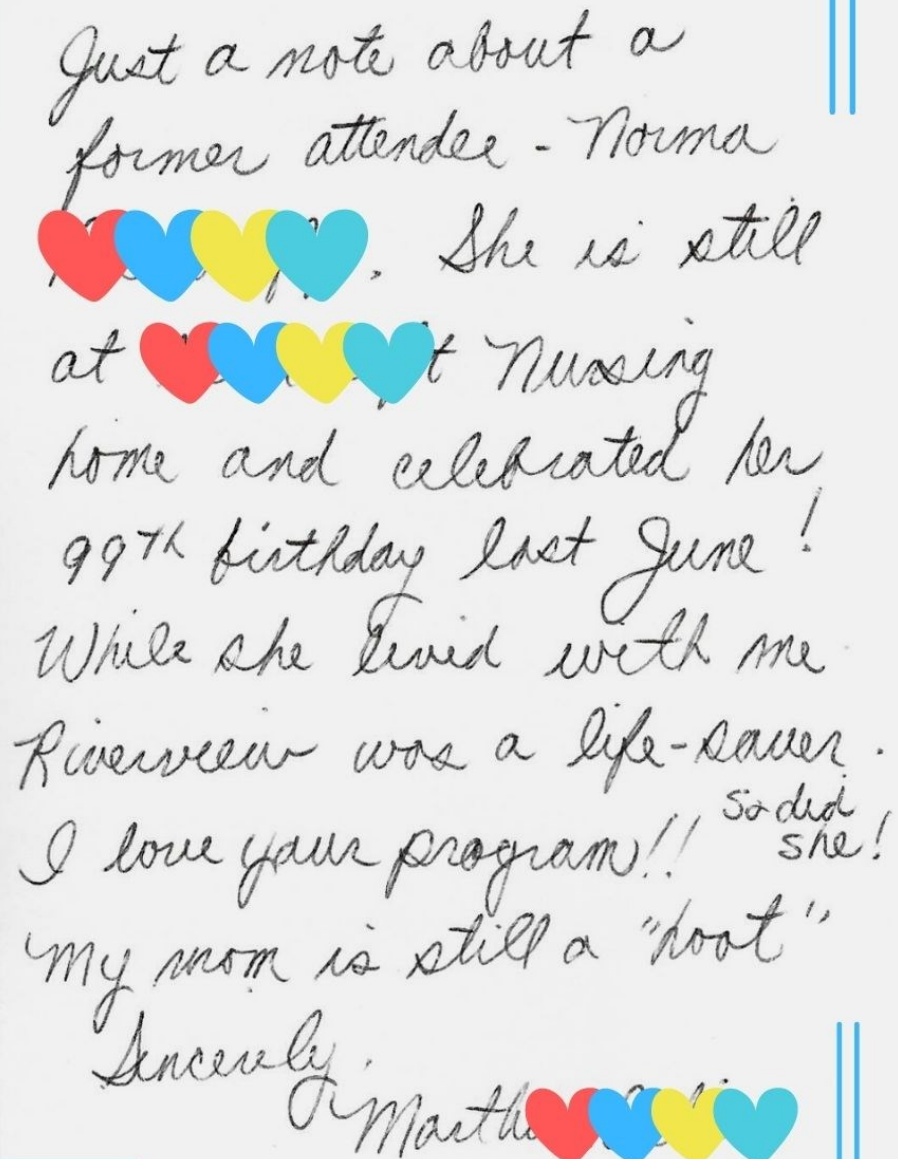 Just a note about a
former attendee - Norma
. She is still
at Nursing
home and celebrated her
99th birthday last June!
While she lived with me
Riverview was a life-saver.
I love your program!! So did
she!
My mom is still a "hoot"
Sincerely,
Martha